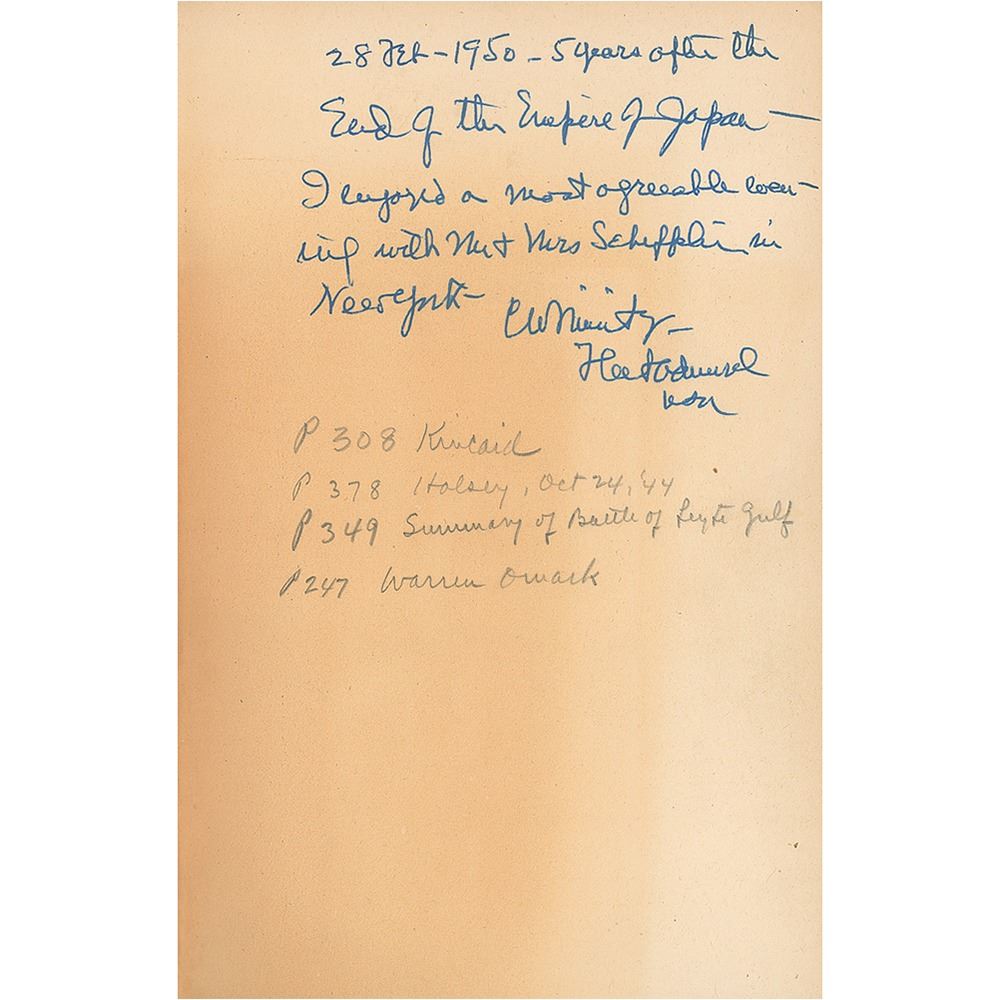 28 Feb-1950 - 5 years after the
End of the Empire of Japan -
I enjoyed a most agreeable even-
ing with Mr & Mrs Schiffelin in
New York - CWNimitz -
Fleet Admiral
USN
P 308 Kincaid
P 378 Halsey, Oct 24, '44
P 349 Summary of Battle of Leyte Gulf
P 247 Warren Omark